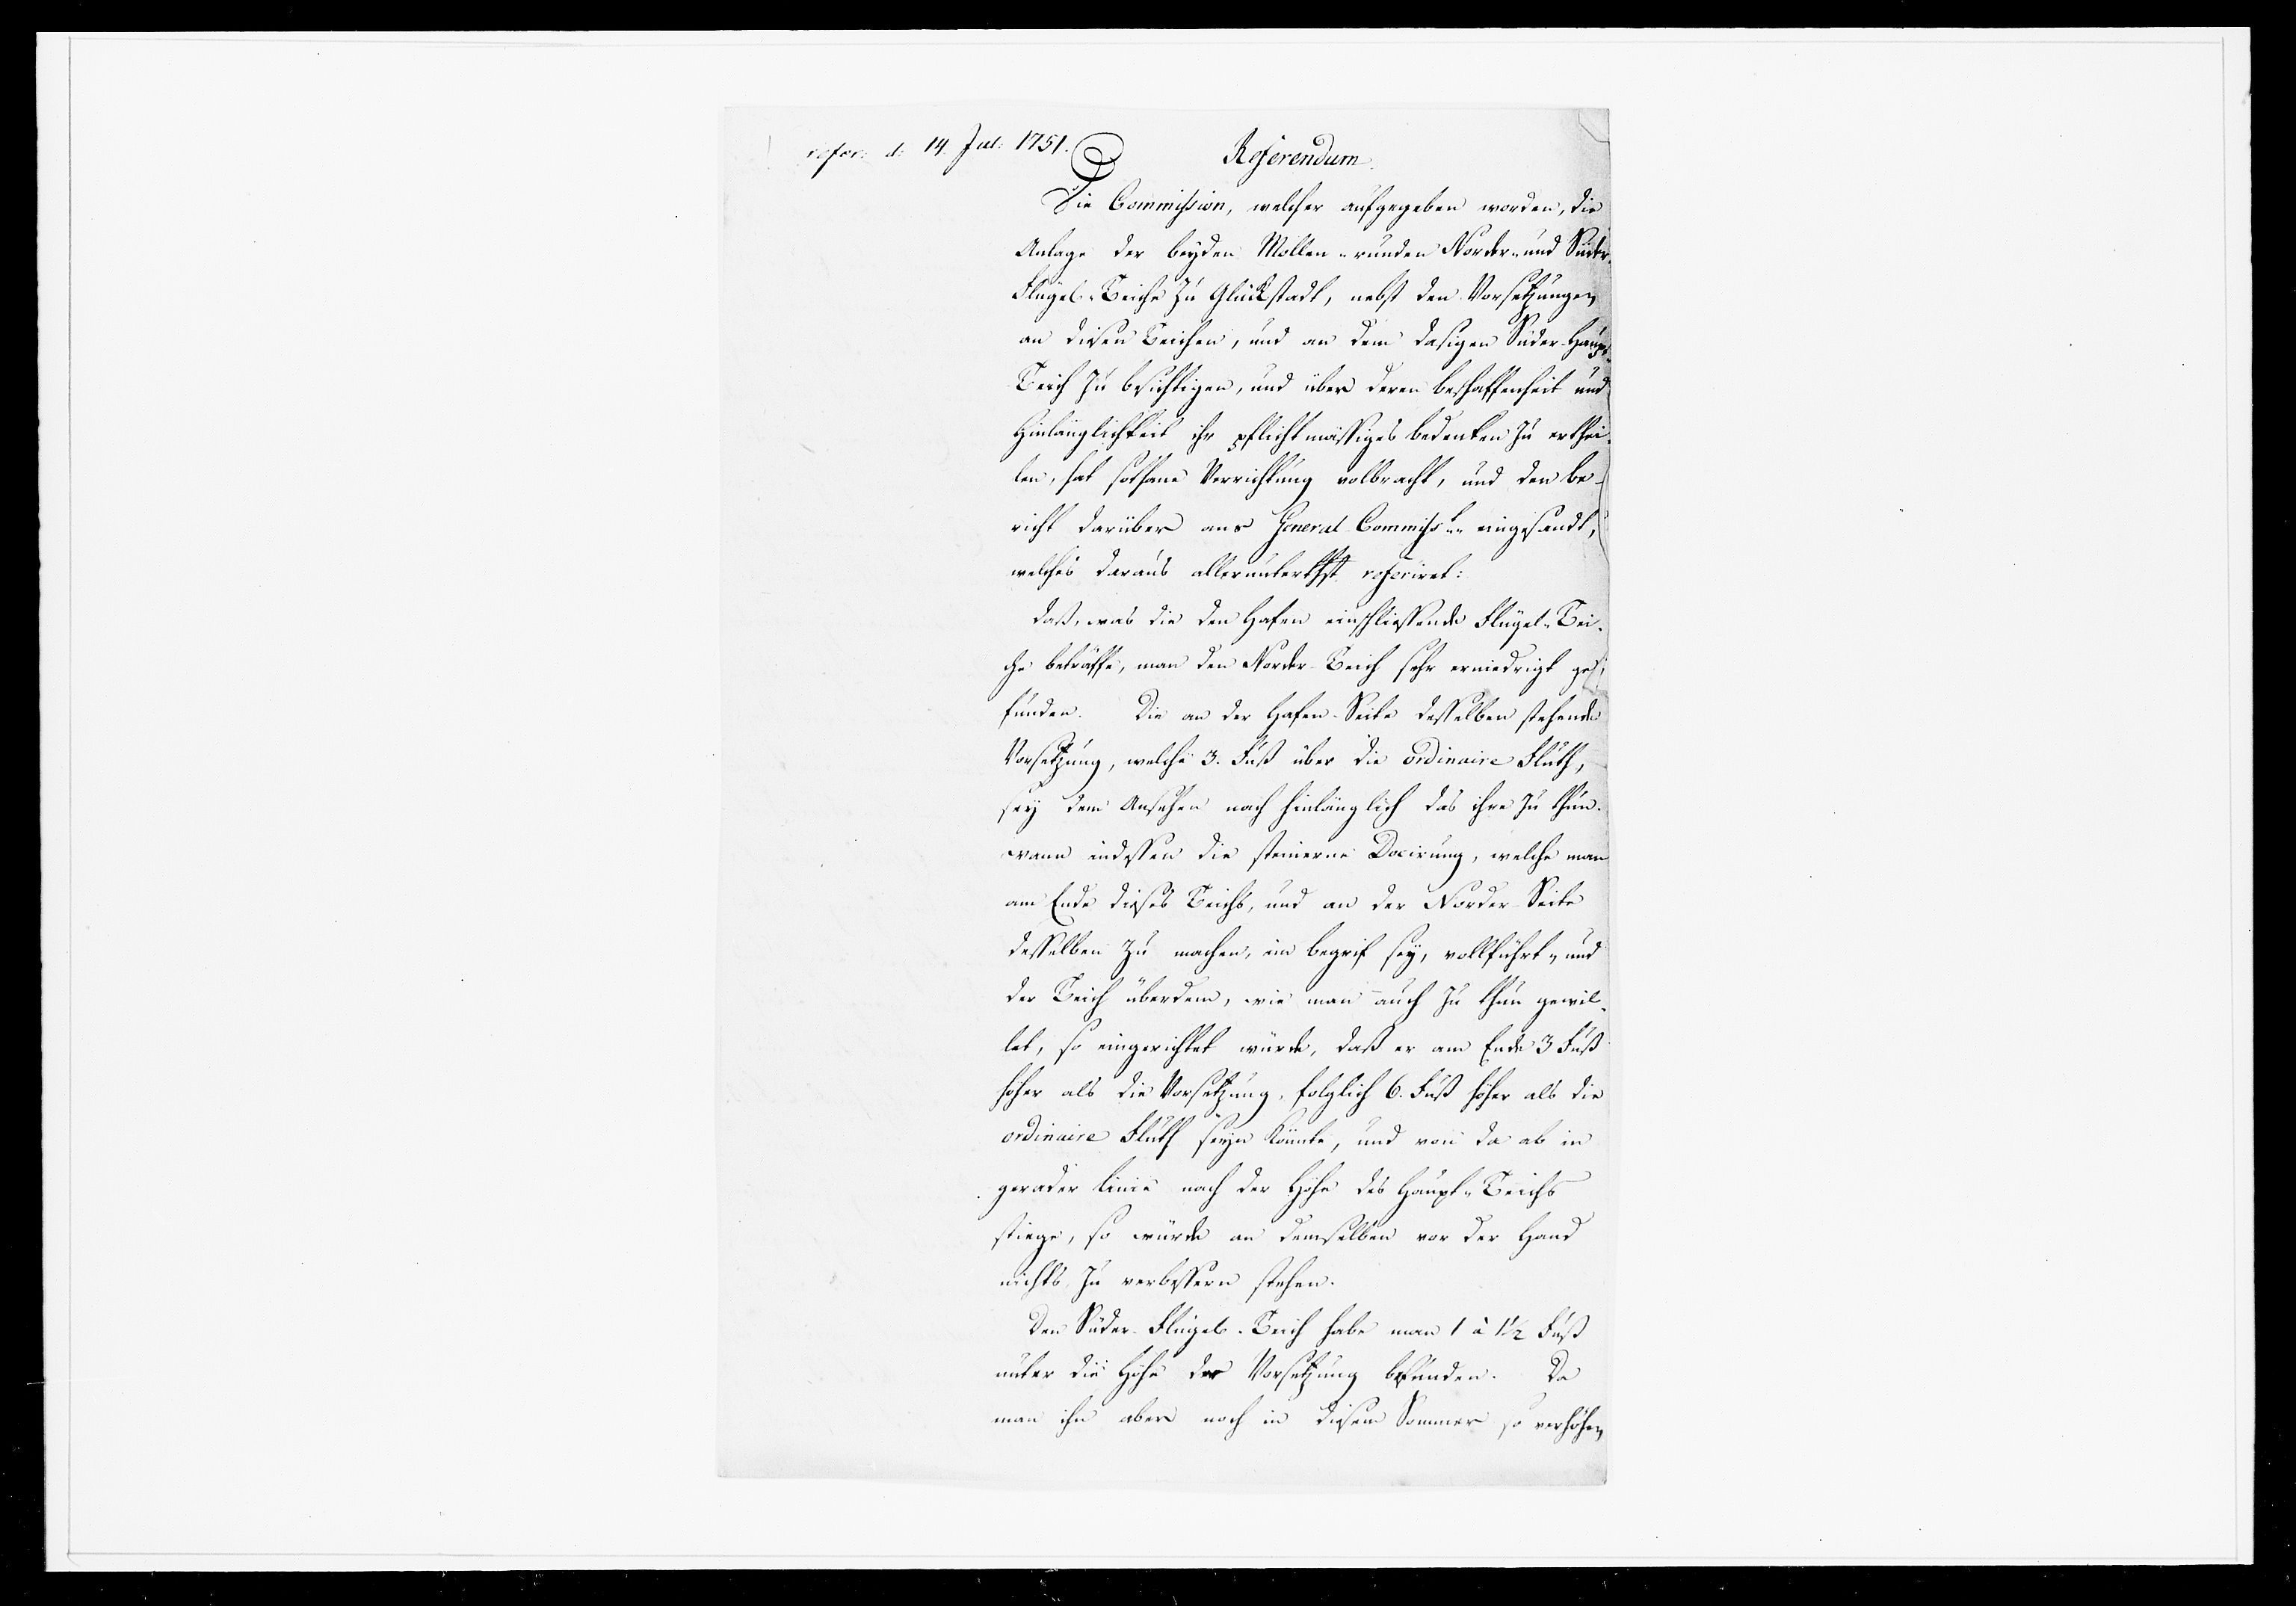 refer: d: 14. Jul: 1751.
Referendum.
Die Commission, welcher aufgegeben worden, die
Anlage der beyden Mollen- runden Norder- und Süder-
Flügel-Teiche zu Glückstadt, nebst den Vorsetzungen
an diesen Teichen, und an dem dasigen Süder-Haupt-
Teich zu besichtigen, und über deren beschaffenheit und
Hinlänglichkeit ihr pflichtmässiges bedenken zu erthei-
len, hat sothane Verrichtung volbracht, und den be-
richt darüber ans General-Commiss: eingesandt,
welches daraus allerunterthst referiret:
daß, was die den Hafen einschliessende Flügel-Tei-
che beträffe, man den Norder-Teich sehr erniedrigt ge-
funden. Die an der Hafen-Seite desselben stehende
Vorsetzung, welche 3. Fuß über die ordinaire Fluth,
sey dem Ansehen nach hinlänglich das ihre zu thun.
wann indessen die steinerne Docirung, welche man
am Ende dieses Teichs, und an der Norder-Seite
desselben zu machen, im begrif sey, vollführt- und
der Teich überdem, wie man auch zu thun gewil-
let, so eingerichtet würde, daß er am Ende 3 Fuß
höher als die Vorsetzung, folglich 6. Fuß höher als die
ordinaire Fluth seyn könnte, und von da ab in
gerader Linie nach der Höhe des Haupt-Teichs
stiege, so würde an demselben vor der Hand
nichts zu verbessern stehen.
Den Süder-Flügel-Teich habe man 1 à 1½ Fuß
unter die Höhe der Vorsetzung befunden. Da
man ihn aber noch in diesem Sommer so verhöhen